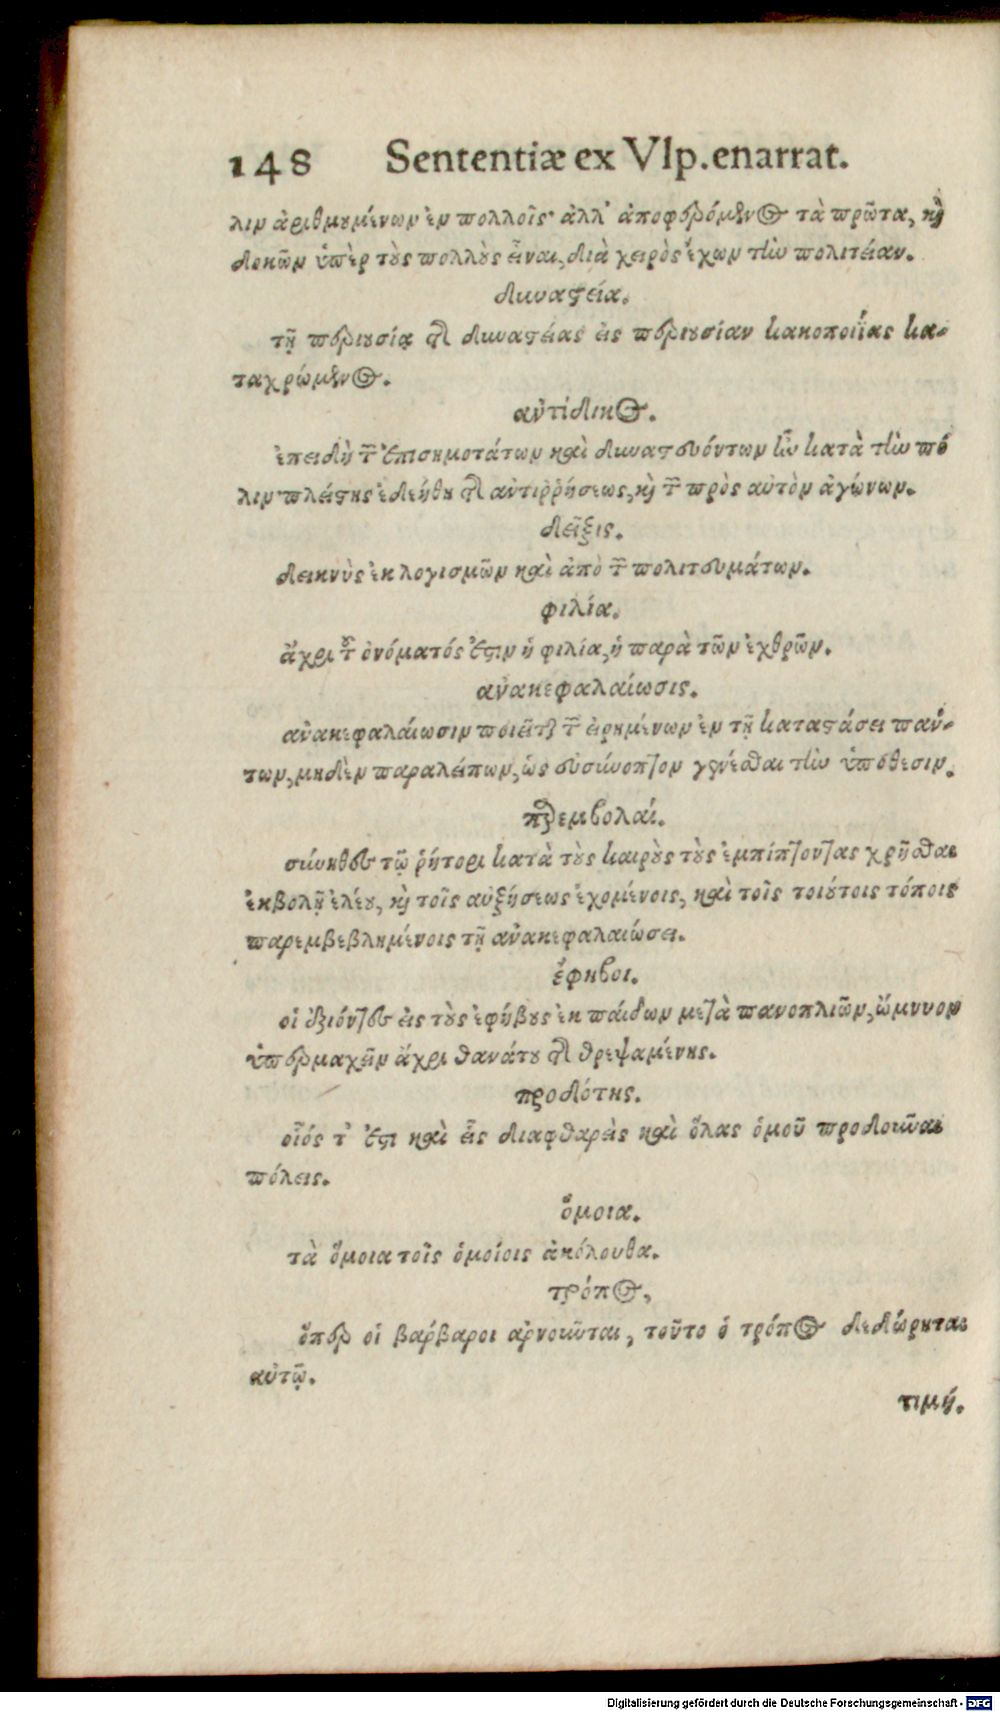 148 Sententiæ ex Vlp. enarrat.
λιν ἀριθμουμένων ἐν πολλοῖς· ἀλλ' ἀποφερόμενος τὰ πρῶτα, καὶ
δοκῶν ὑπὲρ τοὺς πολλοὺς εἶναι, διὰ χειρὸς ἔχων τὴν πολιτείαν.
δυναστεία.
τῇ περιουσίᾳ τῆς δυναστείας εἰς περιουσίαν κακοποιΐας κα-
ταχρώμενος.
αὐτίδικος.
ἐπειδὴ τῶν ἐπισημοτάτων καὶ δυναστευόντων ὢν κατὰ τὴν πό
λιν πλείστης ἐδεήθη τῆς ἀντιῤῥήσεως, καὶ τῶν πρὸς αὐτὸν ἀγώνων.
δεῖξις.
δεικνὺς ἐκ λογισμῶν καὶ ἀπὸ τῶν πολιτευμάτων.
φιλία.
ἄχρι τοῦ ὀνόματός ἐστιν ἡ φιλία, ἡ παρὰ τῶν ἐχθρῶν.
ἀνακεφαλαίωσις.
ἀνακεφαλαίωσιν ποιεῖται τῶν εἰρημένων ἐν τῇ καταστάσει πάν-
των, μηδὲν παραλείπων, ὡς εὐσύνοπτον γενέσθαι τὴν ὑπόθεσιν.
παρεμβολαί.
σύνηθες τῷ ῥήτορι κατὰ τοὺς καιροὺς τοὺς ἐμπίπτοντας χρῆσθαι
ἐκβολῇ ἐλέου, καὶ τοῖς αὐξήσεως ἐχομένοις, καὶ τοῖς τοιούτοις τόποις
παρεμβεβλημένοις τῇ ἀνακεφαλαιώσει.
ἔφηβοι.
οἱ ἐξιόντες εἰς τοὺς ἐφήβους ἐκ παίδων μετὰ πανοπλιῶν, ὤμνυον
ὑπερμαχεῖν ἄχρι θανάτου τῆς θρεψαμένης.
προδότης.
οἷός τ' ἐστι καὶ εἷς διαφθαρεὶς καὶ ὅλας ὁμοῦ προδοῦναι
πόλεις.
ὅμοια.
τὰ ὅμοια τοῖς ὁμοίοις ἀκόλουθα.
τρόπος,
ὅπερ οἱ βάρβαροι ἀρνοῦνται, τοῦτο ὁ τρόπος δεδώρηται
αὐτῷ.
τιμή.
Digitalisierung gefördert durch die Deutsche Forschungsgemeinschaft - DFG